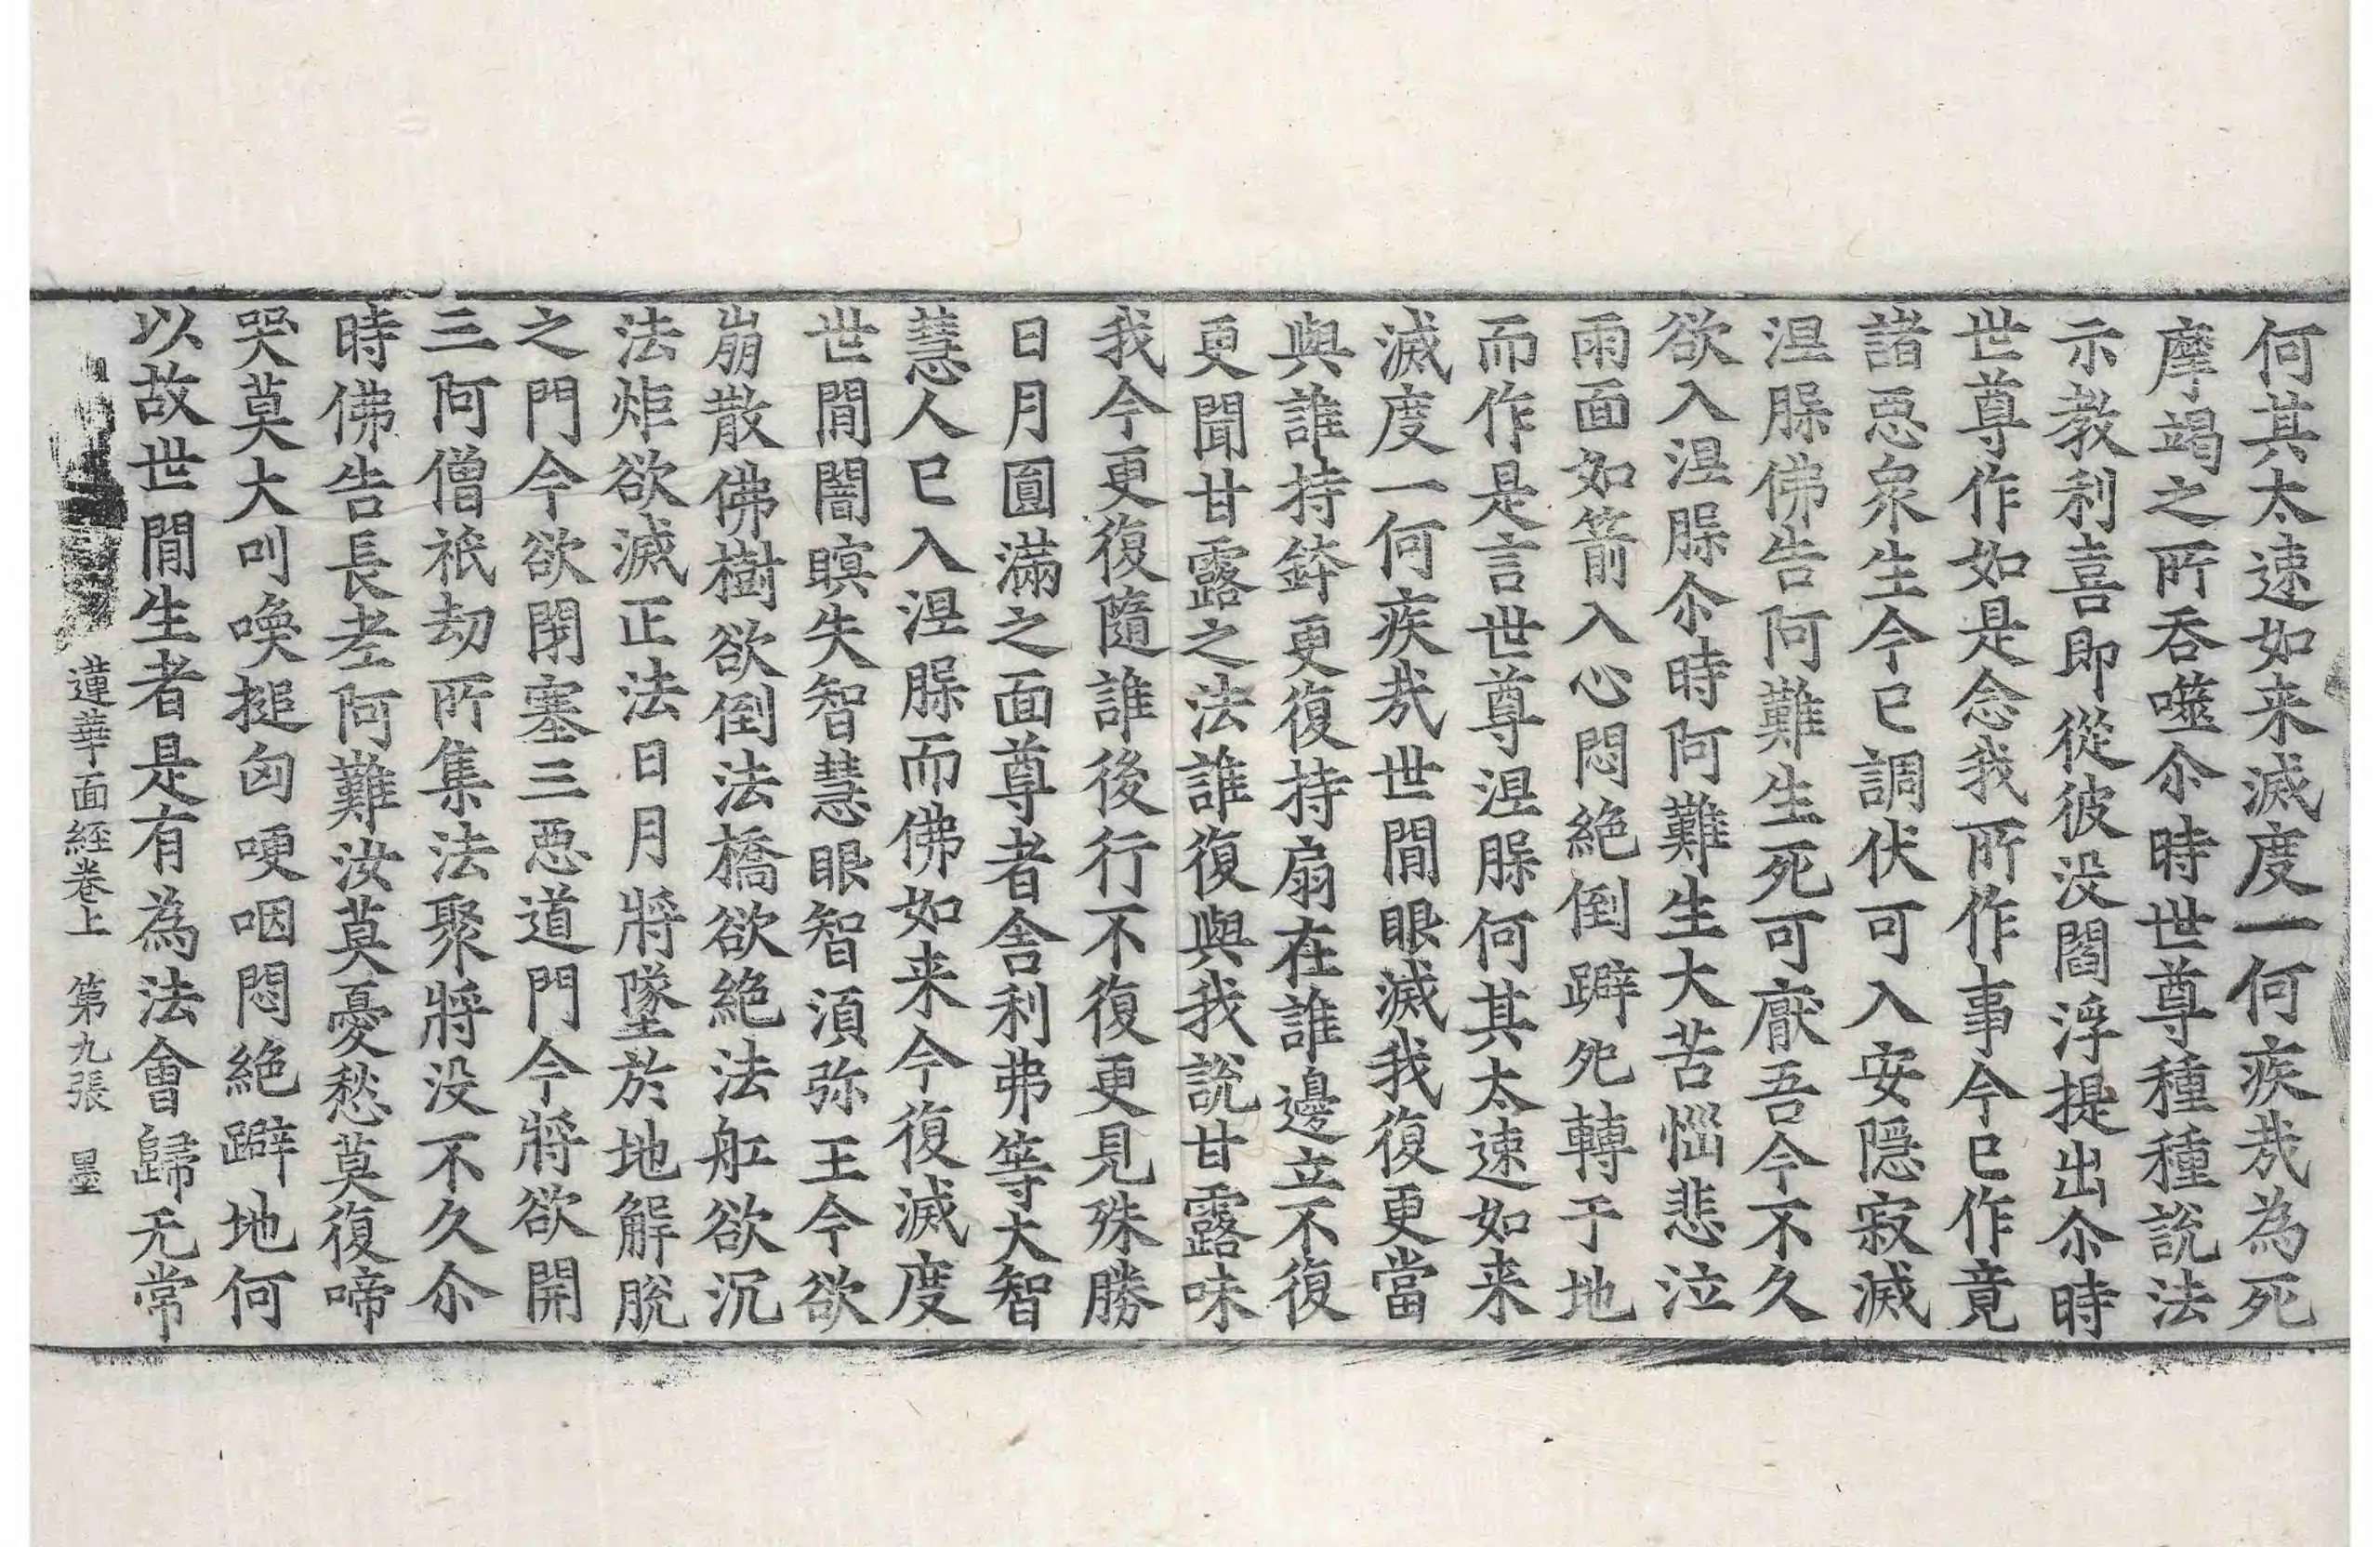 何其太速如来滅度一何疾㢤為死
摩竭之所吞噬尒時世尊種種說法
示教利喜即從彼没閻浮提出尒時
世尊作如是念我所作事今已作竟
諸惡泉生今已調伏可入安隱寂滅
涅槃佛告阿難生死可厭吾今不久
欲入涅槃尒時阿難生大苦惱悲泣
雨面如箭入心悶絕倒躃宛轉于地
而作是言世尊涅槃何其太速如来
滅度一何疾㢤世閒眼滅我復更當
與誰持鉢更復持扇在誰邊立不復
更聞甘露之法誰復與我說甘露味
我今更復隨誰後行不復更見殊勝
日月圓滿之面尊者舍利弗等大智
慧人已入涅槃而佛如来今復滅度
世閒闇瞑失智慧眼智湏弥王今欲
崩散佛樹欲倒法橋欲絕法舡欲沉
法炬欲滅正法日月將墜於地解脫
之門今欲閉塞三惡道門今將欲開
三阿僧祇劫所集法聚將没不久尒
時佛告長老阿難汝莫憂愁莫復啼
哭莫大叫喚搥匈哽咽悶絕躃地何
以故世閒生者是有為法會歸无常
蓮華面経卷上 第九張 墨